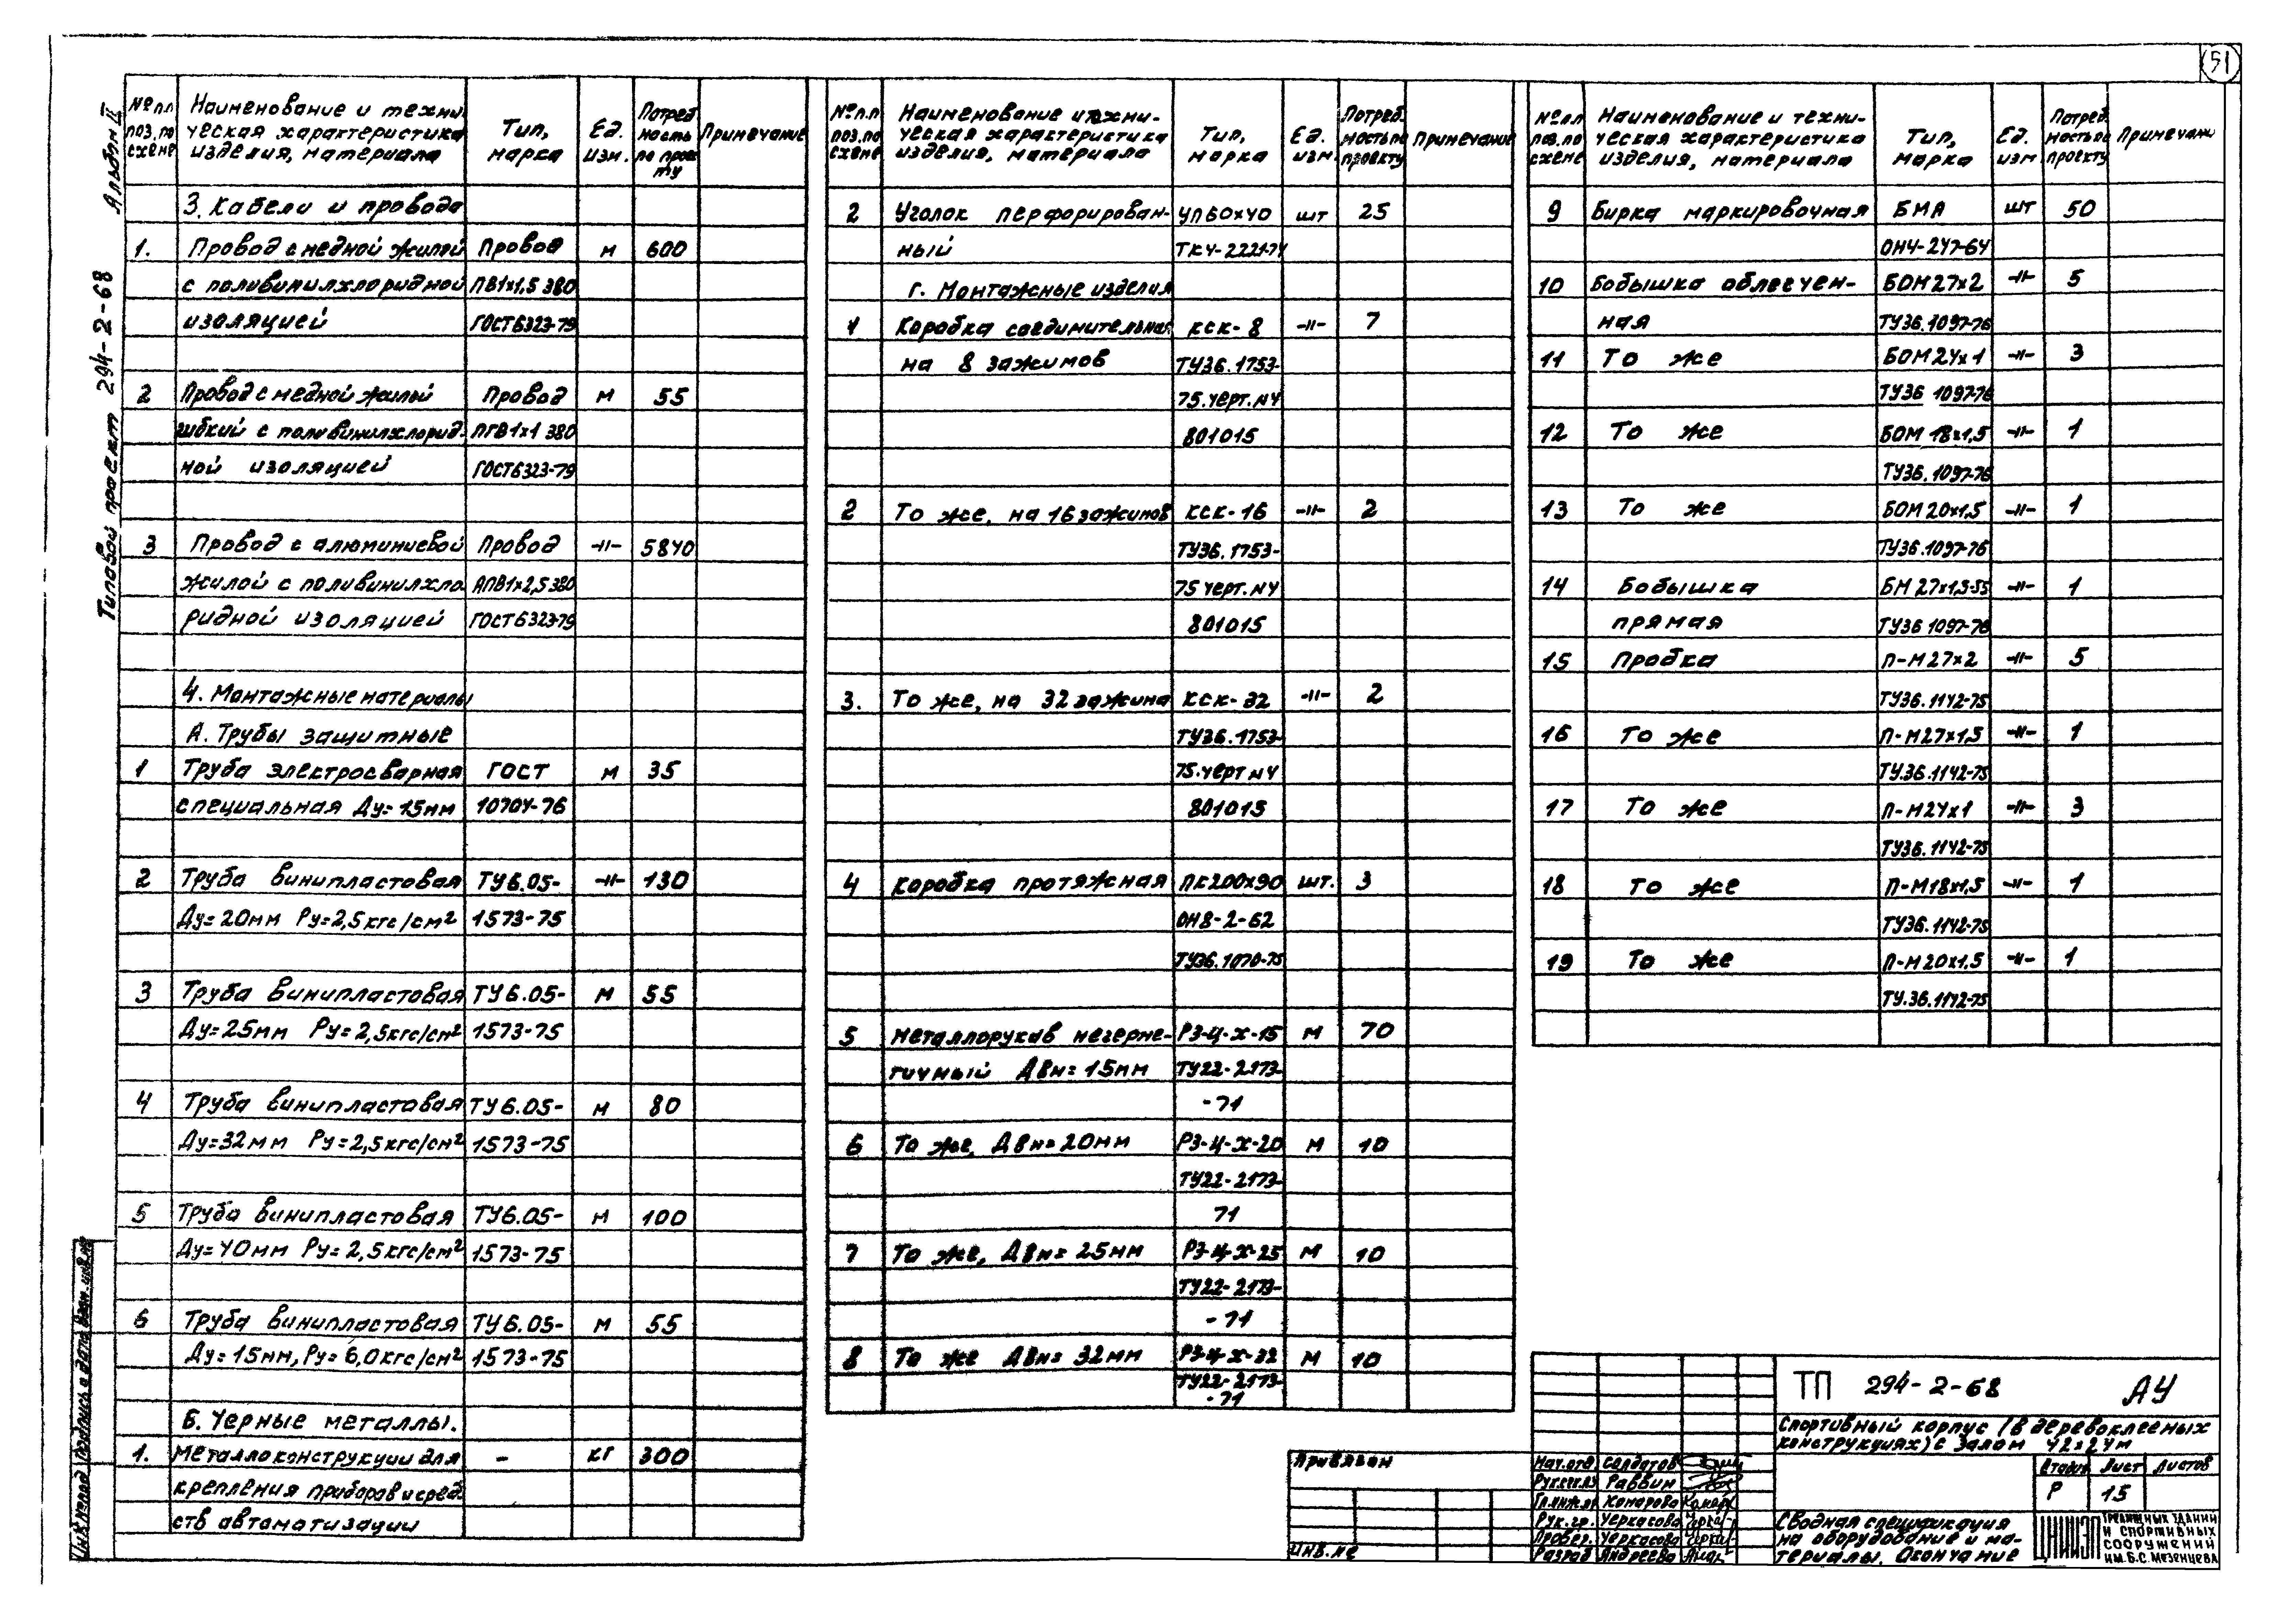 51
Альбом II
Типовой проект 294-2-68
№ п.п поз. по схеме | Наименование и техническая характеристика изделия, материала | Тип, марка | Ед. изм. | Потребность по проекту | Примечание
3. Кабели и провода
1. Провод с медной жилой Провод м 600
с поливинилхлоридной ПВ1х1,5 380
изоляцией ГОСТ 6323-79
2 Провод с медной жилой Провод м 55
гибкий с поливинилхлорид- ПГВ1х1 380
ной изоляцией ГОСТ 6323-79
3 Провод с алюминиевой Провод -"- 5840
жилой с поливинилхло АПВ1х2,5 380
ридной изоляцией ГОСТ 6323-79
4. Монтажные материалы
А. Трубы защитные
1 Труба электросварная ГОСТ м 35
специальная Ду=15мм 10704-76
2 Труба винипластовая ТУ6.05- -"- 130
Ду=20мм Ру=2,5кгс/см² 1573-75
3 Труба винипластовая ТУ6.05- м 55
Ду=25мм Ру=2,5кгс/см² 1573-75
4 Труба винипластовая ТУ6.05- м 80
Ду=32мм Ру=2,5кгс/см² 1573-75
5 Труба винипластовая ТУ6.05- м 100
Ду=40мм Ру=2,5кгс/см² 1573-75
6 Труба винипластовая ТУ6.05- м 55
Ду=15мм, Ру=6,0кгс/см² 1573-75
Б. Черные металлы.
1. Металлоконструкции для - кг 300
крепления приборов и сред
ств автоматизации
№ п.п поз. по схеме | Наименование и техническая характеристика изделия, материала | Тип, марка | Ед. изм. | Потребность по проекту | Примечание
2 Уголок перфорирован- УП60х40 шт 25
ный ТК4-2221-74
г. Монтажные изделия
1 Коробка соединительная КСК-8 -"- 7
на 8 зажимов ТУ36.1753-
75.черт.М4
801015
2 То же, на 16 зажимов КСК-16 -"- 2
ТУ36.1753-
75 черт.М4
801015
3. То же, на 32 зажима КСК-32 -"- 2
ТУ36.1753-
75.черт М4
801015
4 Коробка протяжная ПК200х90 шт. 3
ОН8-2-62
ТУ36.1070-75
5 Металлорукав негерме- РЗ-Ц-Х-15 м 70
тичный Двн=15мм ТУ22-2173-
-71
6 То же, Двн=20мм РЗ-Ц-Х-20 м 10
ТУ22-2173-
71
7 То же, Двн=25мм РЗ-Ц-Х-25 м 10
ТУ22-2173-
-71
8 То же Двн=32мм РЗ-Ц-Х-32 м 10
ТУ22-2173-
-71
№ п.п поз. по схеме | Наименование и техническая характеристика изделия, материала | Тип, марка | Ед. изм | Потребность по проекту | Примечани
9 Бирка маркировочная БМА шт 50
ОН4-247-64
10 Бобышка облегчен- БОМ27х2 -"- 5
ная ТУ36.1097-76
11 То же БОМ24х1 -"- 3
ТУ36 1097-76
12 То же БОМ 18х1,5 -"- 1
ТУ36.1097-76
13 То же БОМ20х1,5 -"- 1
ТУ36.1097-76
14 Бобышка БМ27х1,5-55 -"- 1
прямая ТУ36 1097-76
15 Пробка П-М27х2 -"- 5
ТУ36.1142-75
16 То же П-М27х1,5 -"- 1
ТУ.36.1142-75
17 То же П-М24х1 -"- 3
ТУ36.1142-75
18 То же П-М18х1,5 -"- 1
ТУ36.1142-75
19 То же П-М20х1,5 -"- 1
ТУ.36.1142-75
Инв.№ подл. Подпись и дата Взам. инв.№
Привязан
Инв.№
Нач.отд Солдатов
Раввин
Гл.инж.пр Комарова
Рук.гр. Черкасова
Провер. Черкасова
Разраб Андреева
ТП 294-2-68 АУ
Спортивный корпус (в деревоклееных
конструкциях) с залом 42х24м
Стадия Лист Листов
Р 15
Сводная спецификация
на оборудование и ма-
териалы. Окончание
ЦНИИЭП
зрелищных зданий
и спортивных
сооружений
им.Б.С.Мезенцева